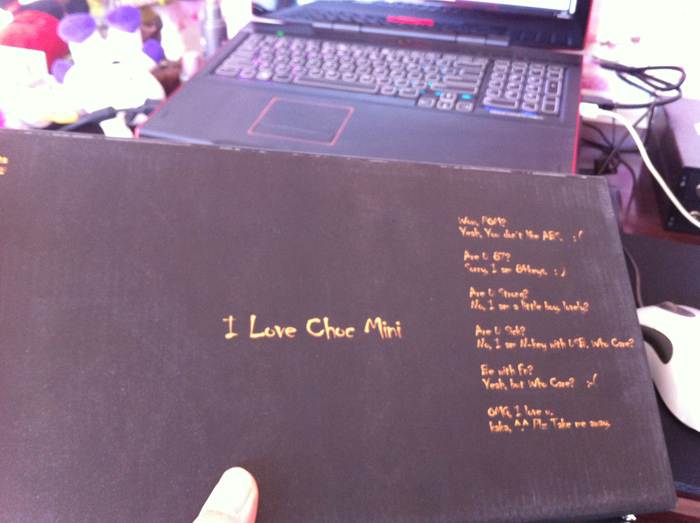 I Love Choc Mini
Wow, POM?
Yeah, You don't the ABS. :(
Are U 87?
Sorry, I am 84keys. :)
Are U Strong?
No, I am a little boy, lovely?
Are U
No, I am N-key with USB, Who Care?
Be with Fn?
Yeah, but Who Care? :(
OMG, I love u,
haha, ^^ Plz Take me away.